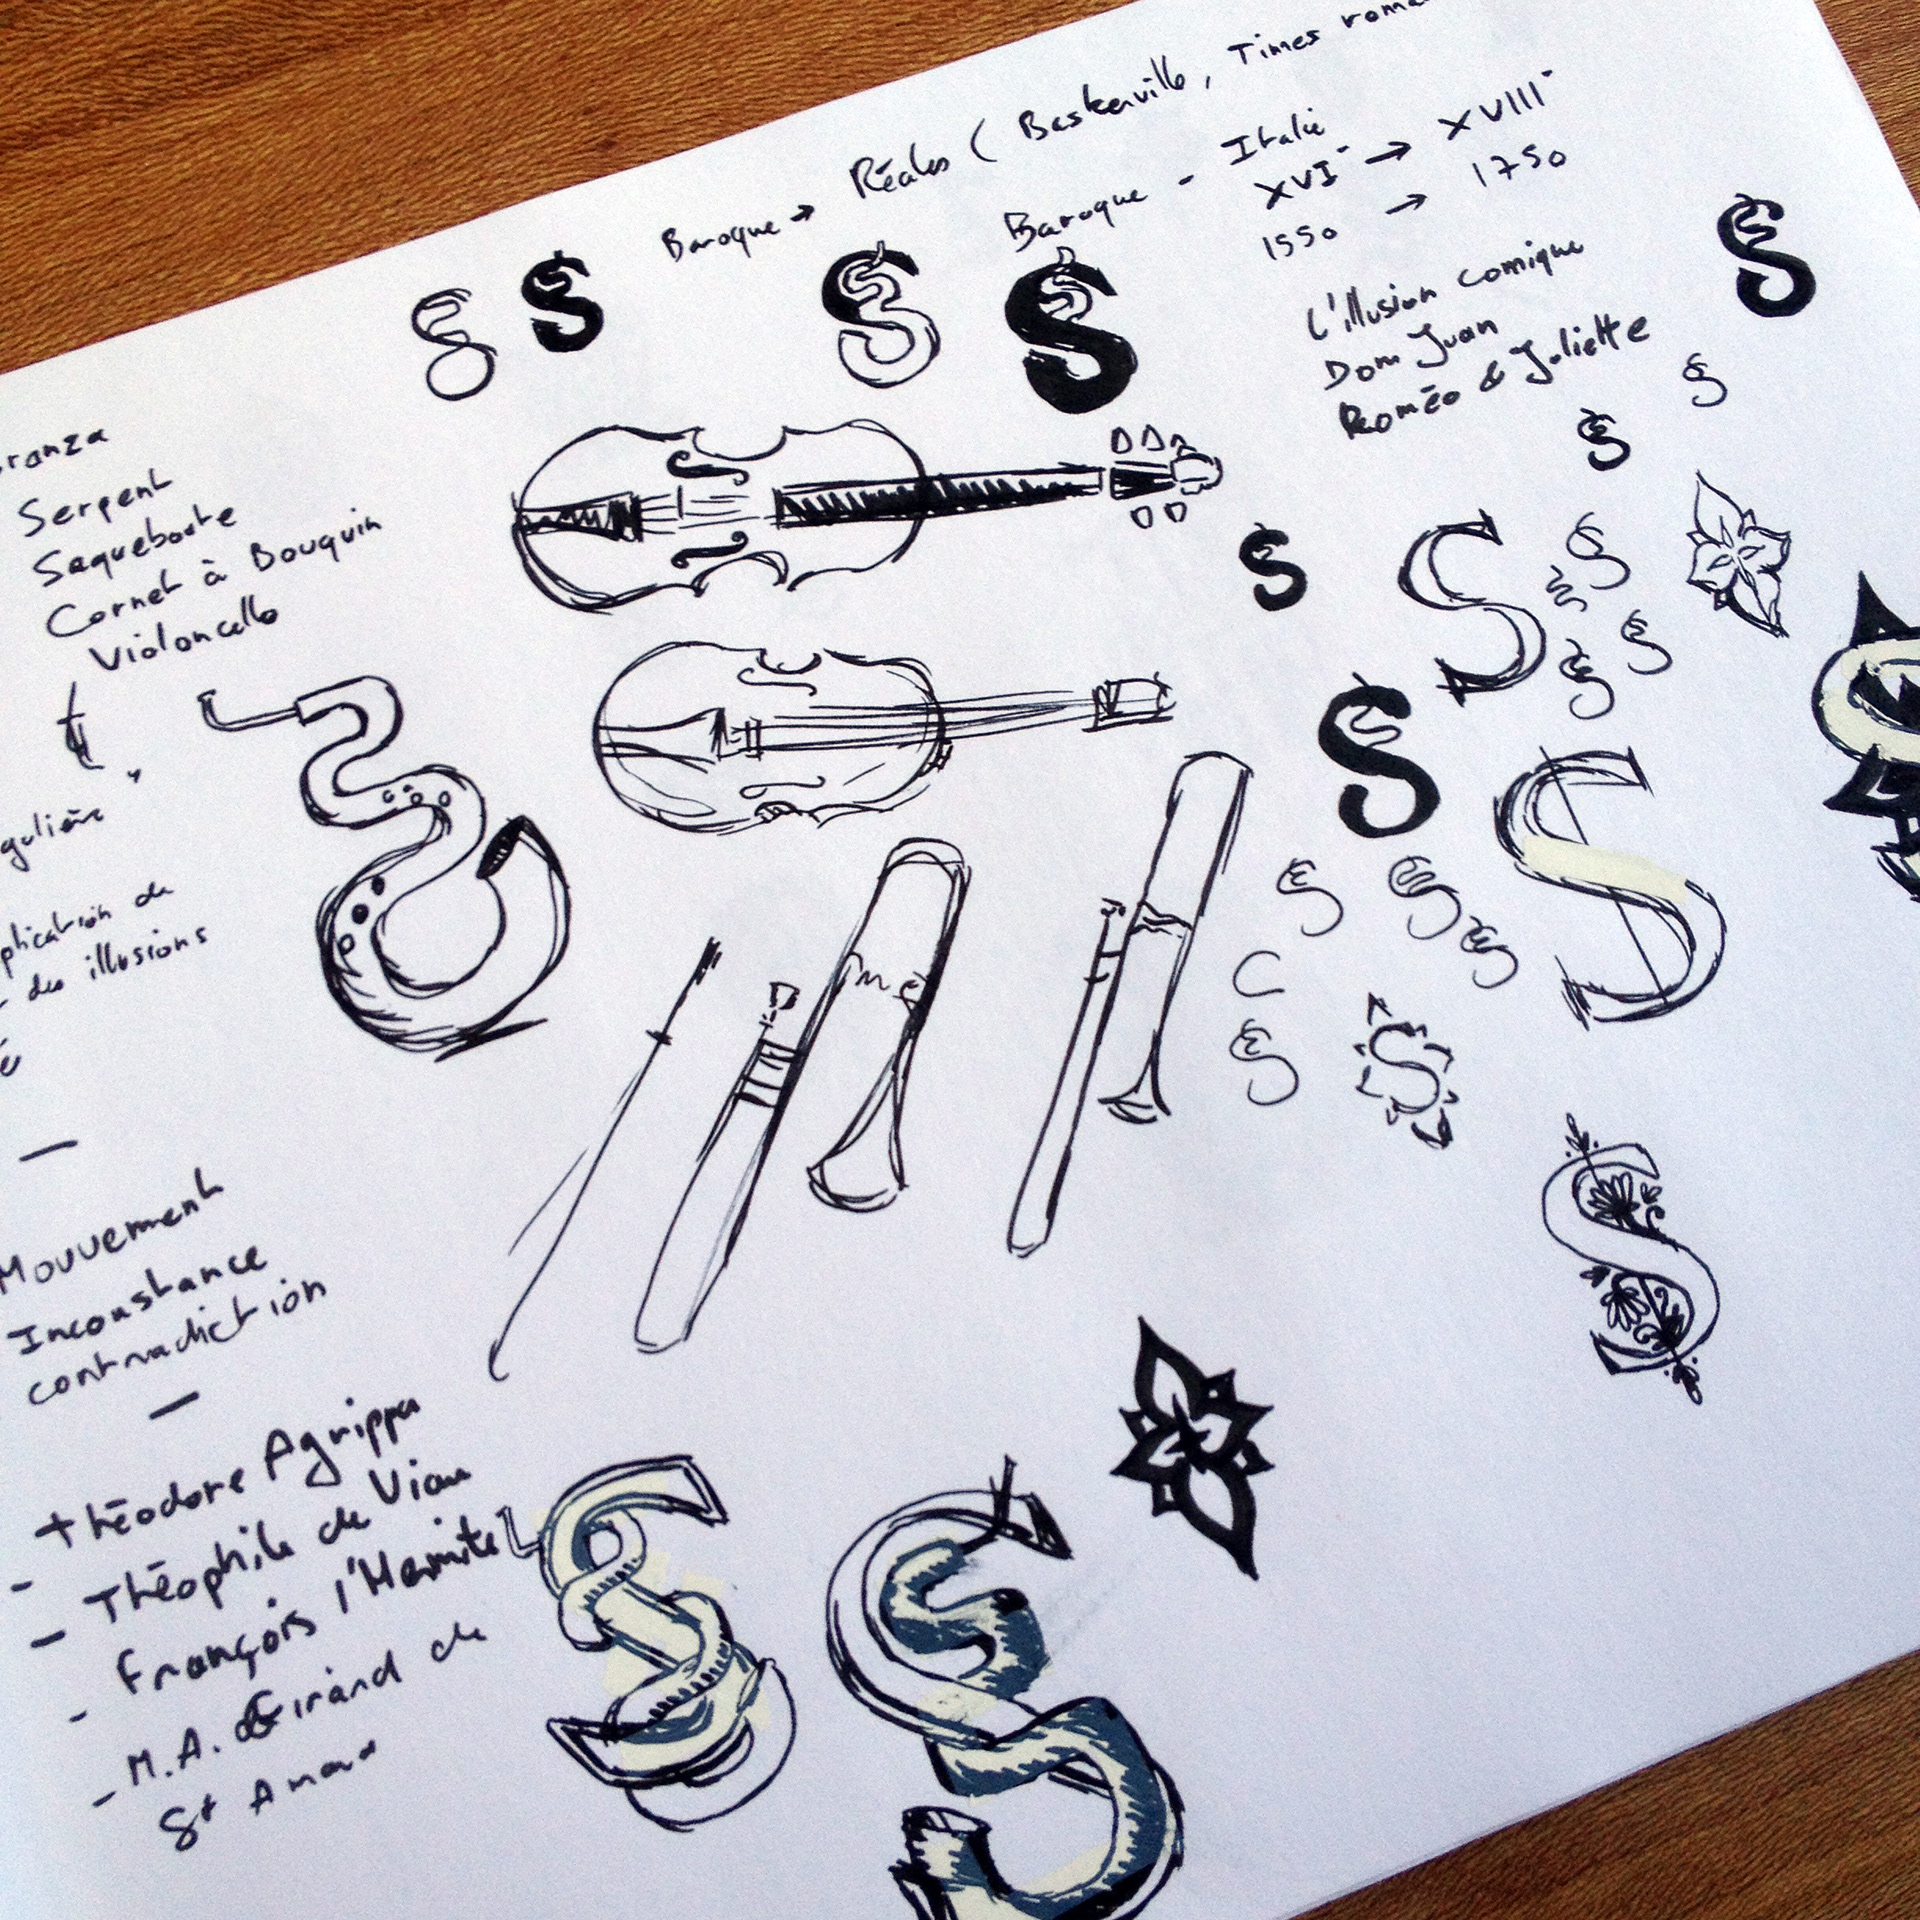 Baroque → Réales ( Baskerville, Times roma
Baroque - Italie
XVI → XVIII
1550 → 1750
L'illusion comique
Dom Juan
Roméo & Juliette
ranza
Serpent
Saqueboute
Cornet à Bouquin
Violoncelle
gulière
plication de
des illusions
—
Mouvement
Inconstance
contradiction
—
Théodore Agrippa
- Théophile de Viau
- François l'Hermite
- M.A. Girand de
St Amand